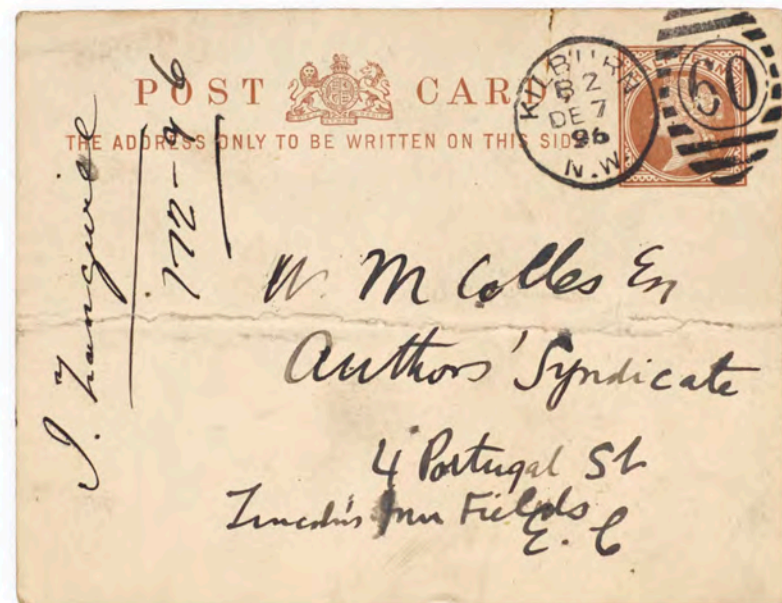 POST CARD
THE ADDRESS ONLY TO BE WRITTEN ON THIS SIDE
KILBURN
B 2
DE 7
96
N.W.
60
W. M Colles Esq
Authors' Syndicate
4 Portugal St
Lincoln's Inn Fields
E. C
I. Zangwill